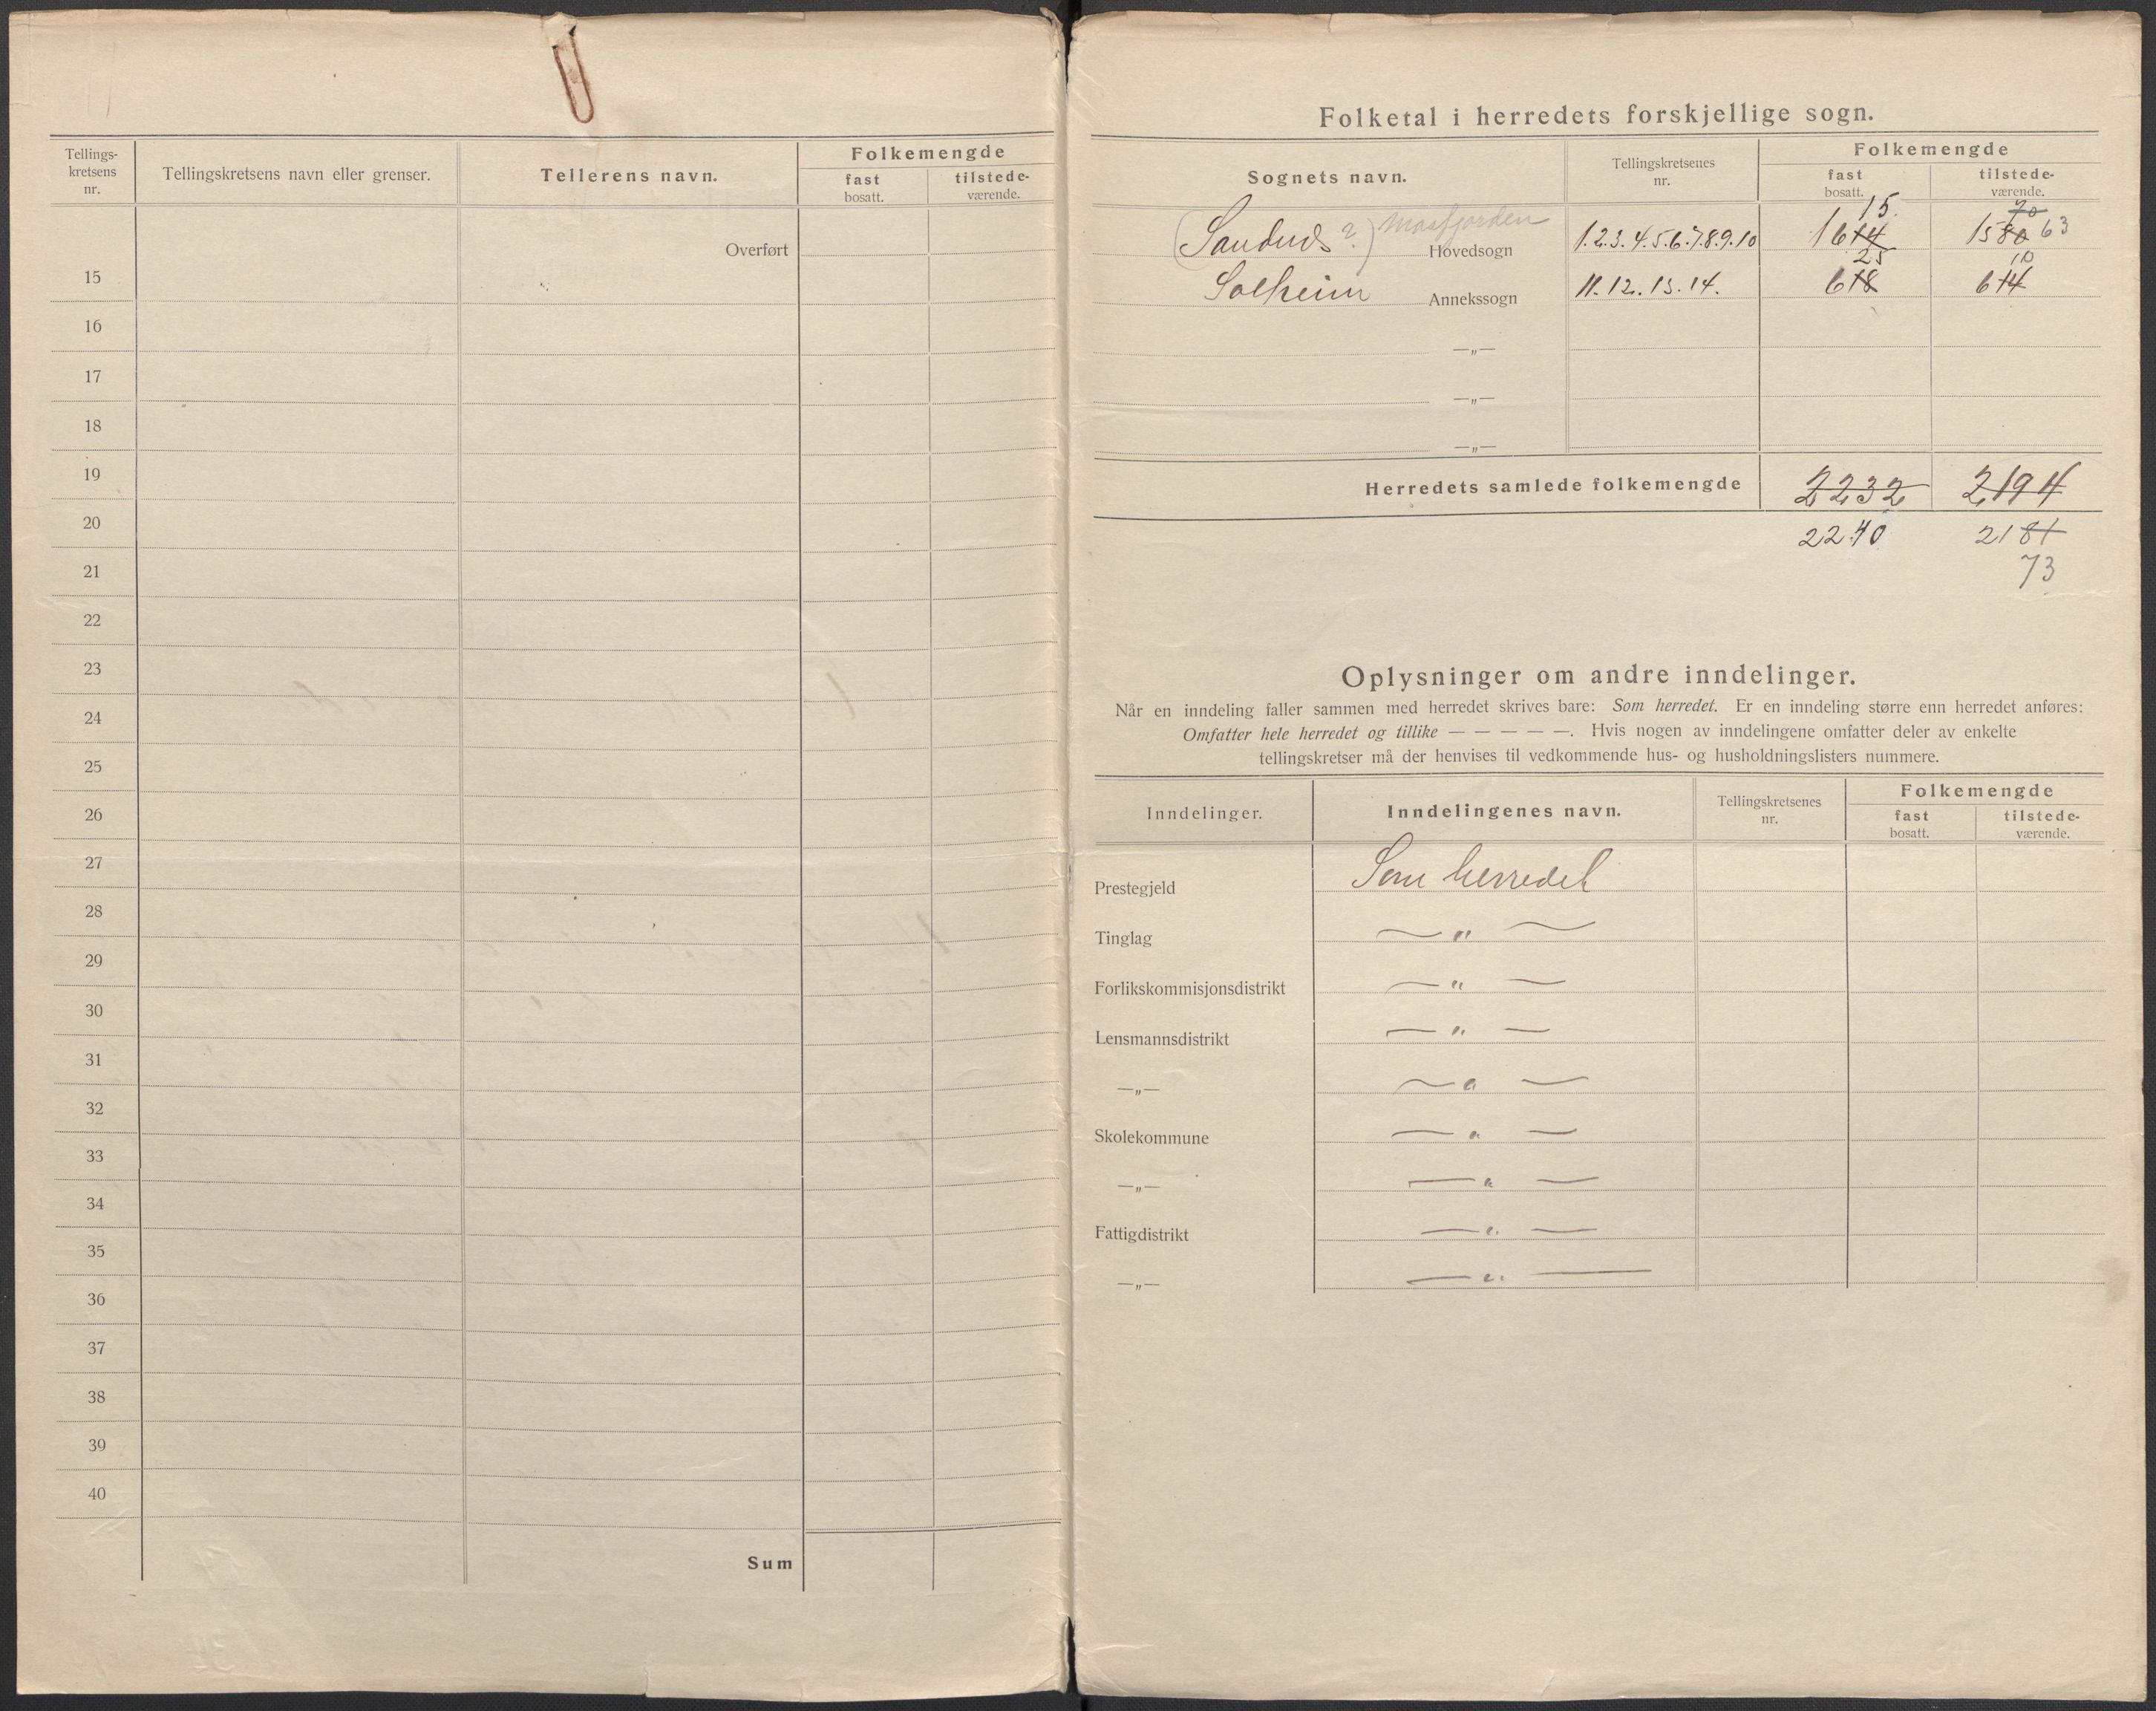 Tellings-
kretsens
nr.
Tellingskretsens navn eller grenser.
Tellerens navn.
Folkemengde
fast
bosatt.
tilstede-
værende.
Overført
15
16
17
18
19
20
21
22
23
24
25
26
27
28
29
30
31
32
33
34
35
36
37
38
39
40
Sum
Folketal i herredets forskjellige sogn.
Sognets navn.
Tellingskretsenes
nr.
Folkemengde
fast
bosatt.
tilstede-
værende.
15. 70
(Sandnes ?) Masfjorden Hovedsogn 1.2.3.4.5.6.7.8.9.10 1614 1580 63
25 10
Solheim Annekssogn 11.12.13.14. 618 614
—„—
—„—
—„—
Herredets samlede folkemengde 2232 2194
2240 2181
73
Oplysninger om andre inndelinger.
Når en inndeling faller sammen med herredet skrives bare: Som herredet. Er en inndeling større enn herredet anføres:
Omfatter hele herredet og tillike — — — — —. Hvis nogen av inndelingene omfatter deler av enkelte
tellingskretser må der henvises til vedkommende hus- og husholdningslisters nummere.
Inndelinger.
Inndelingenes navn.
Tellingskretsenes
nr.
Folkemengde
fast
bosatt.
tilstede-
værende.
Prestegjeld Som herredet
Tinglag — „ —
Forlikskommisjonsdistrikt — „ —
Lensmannsdistrikt — „ —
—„— — „ —
Skolekommune — „ —
—„— — „ —
Fattigdistrikt — „ —
—„— — „ —